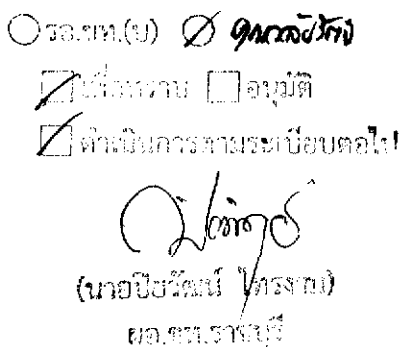 รอ.ขท.(บ) คุณวลัยรัตน์
เพื่อทราบ อนุมัติ
ดำเนินการตามระเบียบต่อไป
(นายปิยวัฒน์ ไทรงาม)
ผอ.ขท.ราชบุรี